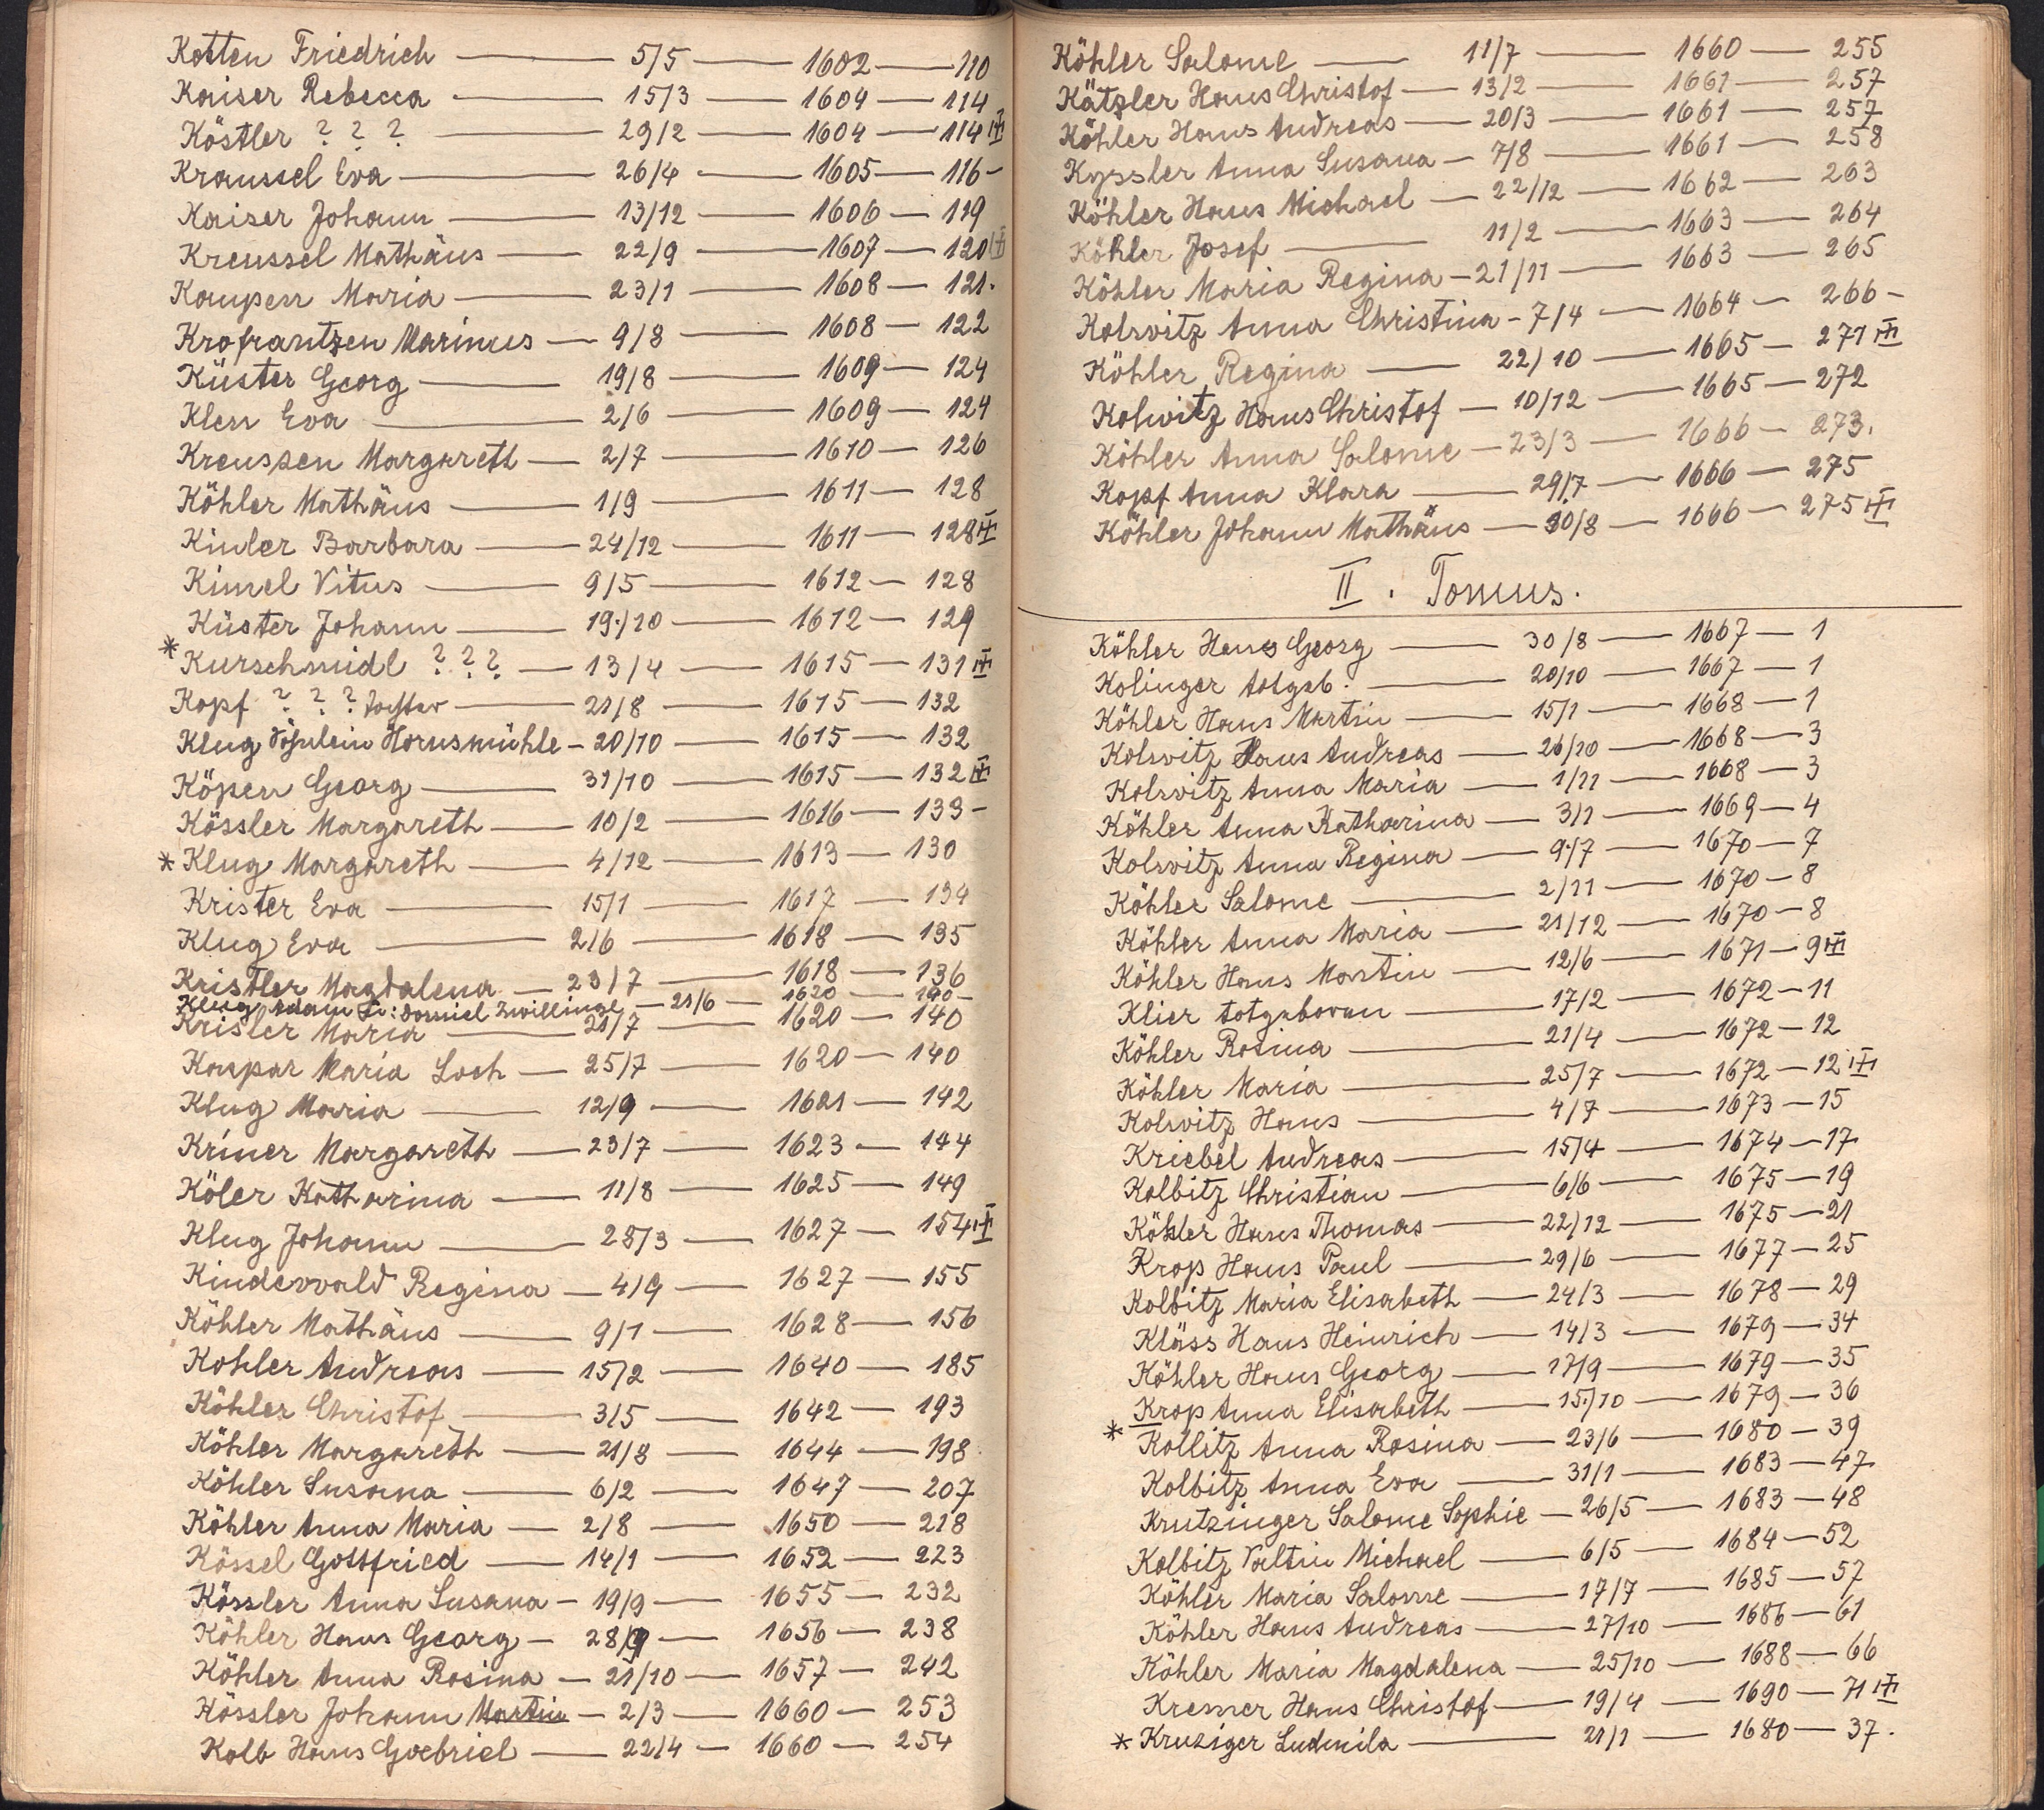 Kotten Friedrich — 5/5 — 1602 — 110
Kaiser Rebecca — 15/3 — 1604 — 114
Köstler ? ? ? — 29/2 — 1604 — 114
Kraussel Eva — 26/4 — 1605 — 116 -
Kaiser Johann — 13/12 — 1606 — 119
Kreussel Mathäus — 22/9 — 1607 — 120
Kaupen Maria — 23/1 — 1608 — 121.
Krofrantzen Marinus — 9/8 — 1608 — 122
Küster Georg — 19/8 — 1609 — 124
Klen Eva — 2/6 — 1609 — 124
Kreussen Margareth — 2/7 — 1610 — 126
Köhler Mathäus — 1/9 — 1611 — 128
Kinler Barbara — 24/12 — 1611 — 128
Kimel Vitus — 9/5 — 1612 — 128
Küster Johann — 19./10 — 1612 — 129
* Kurschmidl ? ? ? — 13/4 — 1615 — 131
Kopf ? ? ? Tochter — 21/8 — 1615 — 132
Klug Söhnlein Hornsmühle — 20/10 — 1615 — 132
Köpen Georg — 31/10 — 1615 — 132
Kössler Margareth — 10/2 — 1616 — 133 -
* Klug Margareth — 4/12 — 1613 — 130
Krister Eva — 15/1 — 1617 — 134
Klug Eva — 2/6 — 1618 — 135
Kristler Magdalena — 23/7 — 1618 — 136
Klug Adam u: Daniel Zwillinge — 21/6 — 1620 — 140 -
Krisler Maria — 21/7 — 1620 — 140
Kaspar Maria Loch — 25/7 — 1620 — 140
Klug Maria — 12/9 — 1621 — 142
Kriner Margareth — 23/7 — 1623 — 144
Köler Katharina — 11/8 — 1625 — 149
Klug Johann — 28/3 — 1627 — 154
Kindervald Regina — 4/9 — 1627 — 155
Köhler Mathäus — 9/1 — 1628 — 156
Kohler Andreas — 15/2 — 1640 — 185
Köhler Christof — 3/5 — 1642 — 193
Köhler Margareth — 21/8 — 1644 — 198
Köhler Susana — 6/2 — 1647 — 207
Köhler Anna Maria — 2/8 — 1650 — 218
Kössel Gottfried — 14/1 — 1652 — 223
Kössler Anna Susana — 19/9 — 1655 — 232
Köhler Hans Georg — 28/9 — 1656 — 238
Köhler Anna Rosina — 21/10 — 1657 — 242
Kössler Johann Martin — 2/3 — 1660 — 253
Kolb Hans Gabriel — 22/4 — 1660 — 254
Köhler Salome — 11/7 — 1660 — 255
Kätzler Hans Christof — 13/2 — 1661 — 257
Köhler Hans Andreas — 20/3 — 1661 — 257
Kyssler Anna Susana — 7/8 — 1661 — 258
Köhler Hans Michael — 22/12 — 1662 — 263
Köhler Josef — 11/2 — 1663 — 264
Köhler Maria Regina — 21/11 — 1663 — 265
Kolwitz Anna Christina — 7/4 — 1664 — 266 -
Köhler Regina — 22/10 — 1665 — 271
Kolwitz Hans Christof — 10/12 — 1665 — 272
Köhler Anna Salome — 23/3 — 1666 — 273.
Kopf Anna Klara — 29/7 — 1666 — 275
Köhler Johann Mathäus — 30/8 — 1666 — 275
II. Tomus.
Köhler Hans Georg — 30/8 — 1667 — 1
Kolinger totgeb. — 20/10 — 1667 — 1
Köhler Hans Martin — 15/1 — 1668 — 1
Kolwitz Hans Andreas — 26/10 — 1668 — 3
Kolwitz Anna Maria — 1/11 — 1668 — 3
Köhler Anna Katharina — 3/1 — 1669 — 4
Kolwitz Anna Regina — 9/7 — 1670 — 7
Köhler Salome — 2/11 — 1670 — 8
Köhler Anna Maria — 21/12 — 1670 — 8
Köhler Hans Martin — 12/6 — 1671 — 9
Klier totgeboren — 17/2 — 1672 — 11
Köhler Rosina — 21/4 — 1672 — 12
Köhler Maria — 25/7 — 1672 — 12
Kolwitz Hans — 4/7 — 1673 — 15
Kriebel Andreas — 15/4 — 1674 — 17
Kolbitz Christian — 6/6 — 1675 — 19
Köhler Hans Thomas — 22/12 — 1675 — 21
Krop Hans Paul — 29/6 — 1677 — 25
Kolbitz Maria Elisabeth — 24/3 — 1678 — 29
Kläss Hans Heinrich — 14/3 — 1679 — 34
Köhler Hans Georg — 17/9 — 1679 — 35
Krop Anna Elisabeth — 15./10 — 1679 — 36
* Kollitz Anna Rosina — 23/6 — 1680 — 39
Kolbitz Anna Eva — 31/1 — 1683 — 47
Krutzinger Salome Sophie — 26/5 — 1683 — 48
Kolbitz Valtin Michael — 6/5 — 1684 — 52
Köhler Maria Salome — 17/7 — 1685 — 57
Köhler Hans Andreas — 27/10 — 1686 — 61
Köhler Maria Magdalena — 25/10 — 1688 — 66
Kremer Hans Christof — 19/4 — 1690 — 71
* Kruziger Ludmila — 21/1 — 1680 — 37.